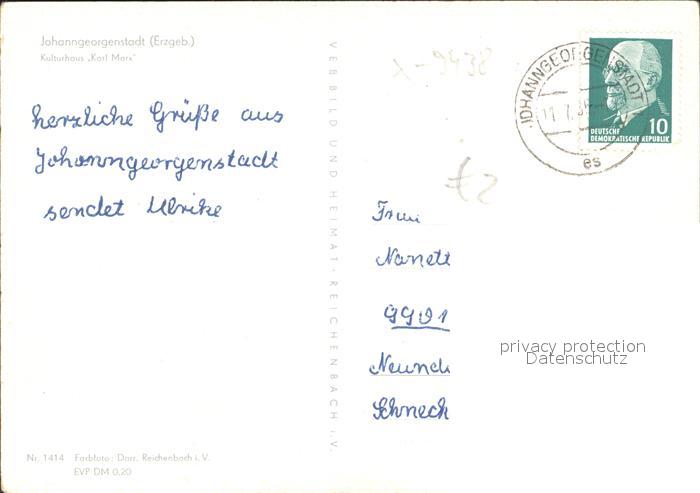 Johanngeorgenstadt (Erzgeb.)
Kulturhaus „Karl Marx"
herzliche Grüße aus
Johanngeorgenstadt
sendet Ulrike
VEB BILD UND HEIMAT · REICHENBACH i. V.
x-9438
£2
JOHANNGEORGENSTADT
es
10
DEUTSCHE
DEMOKRATISCHE REPUBLIK
Frau
Nanett
9901
Neund
Schneck
privacy protection
Datenschutz
Nr. 1414 Farbfoto: Darr, Reichenbach i. V.
EVP DM 0,20